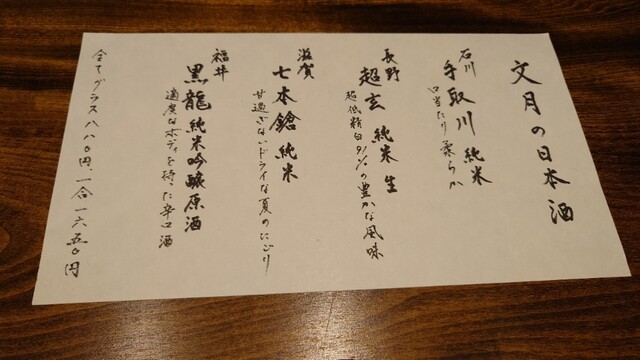 文月の日本酒
石川
手取川 純米
口当たり柔らか
長野
超玄 純米 生
超低精白91%の豊かな風味
滋賀
七本鎗 純米
甘過ぎないドライな夏のにごり
福井
黒龍 純米吟醸原酒
適度なボディを持った辛口酒
全てグラス八八〇円、一合一六五〇円